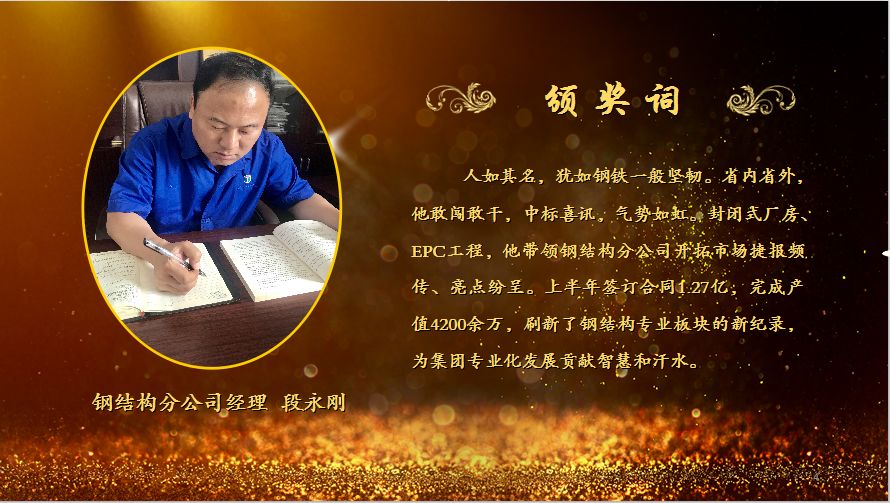 颁奖词
人如其名，犹如钢铁一般坚韧。省内省外，
他敢闯敢干，中标喜讯，气势如虹。封闭式厂房、
EPC工程，他带领钢结构分公司开拓市场捷报频
传、亮点纷呈。上半年签订合同1.27亿；完成产
值4200余万，刷新了钢结构专业板块的新纪录，
为集团专业化发展贡献智慧和汗水。
钢结构分公司经理 段永刚